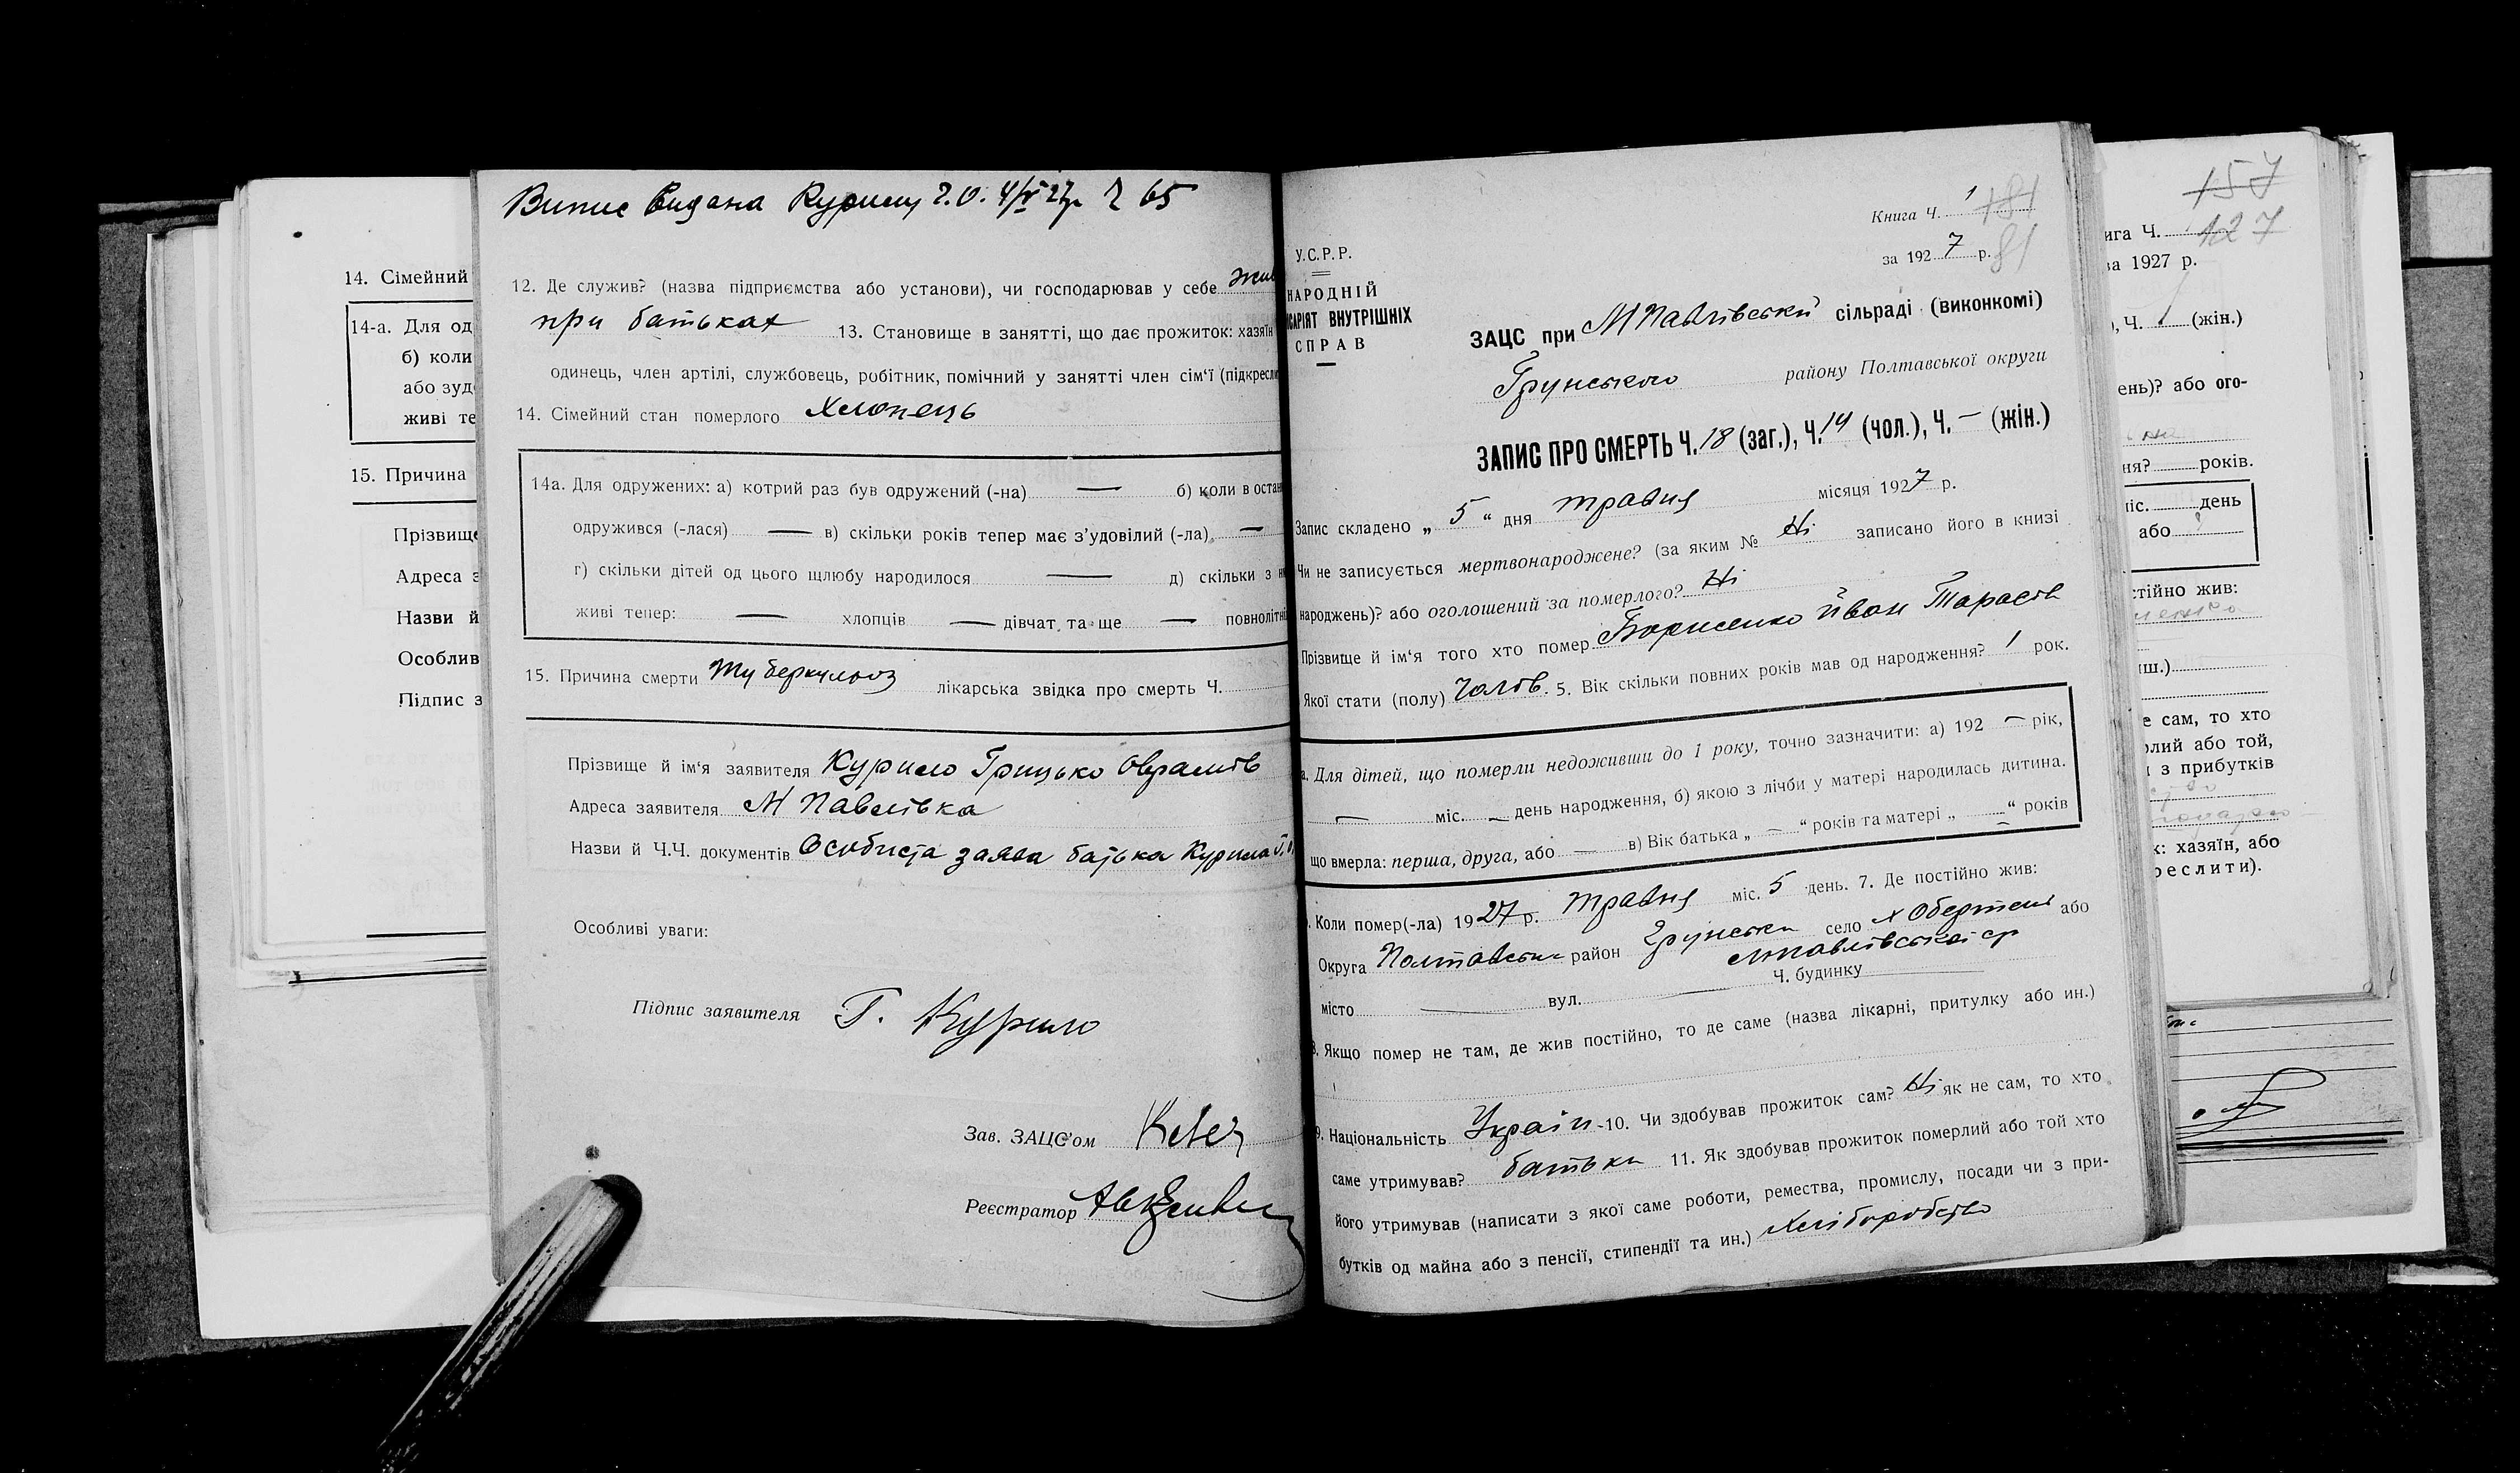 14. Сімейний
14-а. Для од
б) коли
або зуд
живі те
15. Причина
Прізвище
Адреса з
Назви й
Особлив
Підпис з
Випис видана Курилу Г.О. 4/V 27р Ч 65
12. Де служив? (назва підприємства або установи), чи господарював у себе жив
при батьках 13. Становище в занятті, що дає прожиток: хазяїн
одинець, член артілі, службовець, робітник, помічний у занятті член сім‘ї (підкресли
14. Сімейний стан померлого Хлопець
14а. Для одружених: а) котрий раз був одружений (-на) — б) коли в остан
одружився (-лася) — в) скільки років тепер має з’удовілий (-ла) —
г) скільки дітей од цього щлюбу народилося — д) скільки з н
живі тепер: — хлопців — дівчат та ще — повноліт
15. Причина смерти Туберкульоз лікарська звідка про смерть Ч.
Прізвище й ім‘я заявителя Курило Грицько Оврамів
Адреса заявителя М Павлівка
Назви й Ч.Ч. документів Особиста заява батька Курила Г.О.
Особливі уваги:
Підпис заявителя Г. Курило
Зав. ЗАЦС’ом
Реєстратор
Книга Ч. 1 181
за 1927 р. 81
У.С.Р.Р.
НАРОДНІЙ
САРІЯТ ВНУТРІШНІХ
СПРАВ
ЗАЦС при М Павлівській сільраді (виконкомі)
Грунського району Полтавської округи
ЗАПИС ПРО СМЕРТЬ Ч. 18 (заг.), Ч. 14 (чол.), Ч. — (жін.)
Запис складено „ 5 “ дня травня місяця 1927 р.
Чи не записується мертвонароджене? (за яким № Ні записано його в книзі
народжень)? або оголошений за померлого? Ні
Прізвище й ім‘я того хто помер Борисенко Іван Тарасів
Якої стати (полу) Чолов. 5. Вік скільки повних років мав од народження? 1 рок.
а. Для дітей, що померли недоживши до 1 року, точно зазначити: а) 192 — рік,
— міс. — день народження, б) якою з лічби у матері народилась дитина.
що вмерла: перша, друга, або — в) Вік батька „ — “ років та матері „ — “ років
Коли помер(-ла) 1927 р. травня міс. 5 день. 7. Де постійно жив:
Округа Полтавська район Грунськи село х Обертені або
М Павлівської ср
місто — вул. — Ч. будинку
8. Якщо помер не там, де жив постійно, то де саме (назва лікарні, притулку або ин.)
9. Національність Україн 10. Чи здобував прожиток сам? Ні як не сам, то хто
саме утримував? батьки 11. Як здобував прожиток померлий або той хто
його утримував (написати з якої саме роботи, ремества, промислу, посади чи з при-
бутків од майна або з пенсії, стипендії та ин.) Хліборобство
157
ига Ч. 127
за 1927 р.
), Ч. (жін.)
ень)? або ого-
ня? років.
міс. день
або
стійно жив:
иш.)
е сам, то хто
рлий або той,
и з прибутків
к: хазяїн, або
реслити).